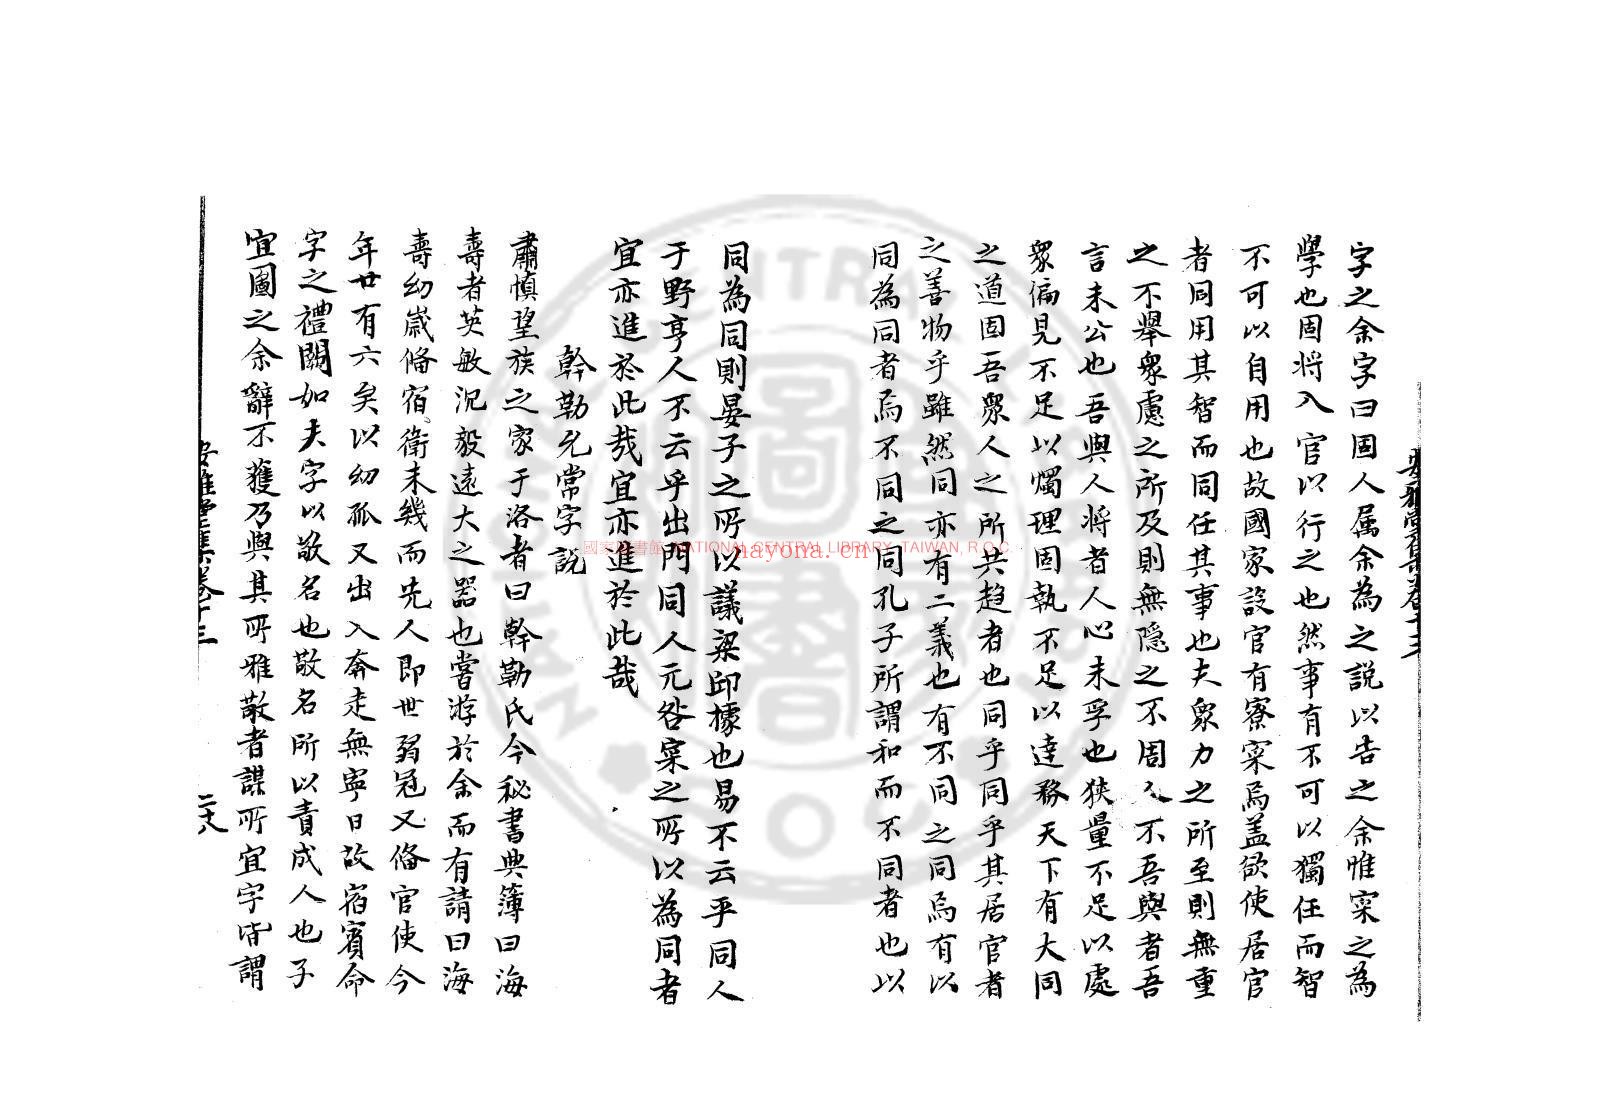 字之余字曰固人属余為之説以告之余惟寀之為
學也固将入官以行之也然事有不可以獨任而智
不可以自用也故國家設官有寮寀焉盖欲使居官
者同用其智而同任其事也夫衆力之所至則無重
之不舉衆慮之所及則無隱之不周人不吾與者吾
言未公也吾與人将者人心未孚也狹量不足以處
衆偏見不足以燭理固執不足以達務天下有大同
之道固吾衆人之所共趋者也同乎同乎其居官者
之善物乎雖然同亦有二義也有不同之同焉有以
同為同者焉不同之同孔子所謂和而不同者也以
同為同則晏子之所以議梁邱據也易不云乎同人
于野亨人不云乎出門同人元咎寀之所以為同者
宜亦進於此哉宜亦進於此哉
幹勒允常字説
肅慎望族之家于洛者曰幹勒氏今秘書典簿曰海
壽者英敏沉毅遠大之器也嘗游於余而有請曰海
壽幼嵗俻宿衛未幾而先人即世弱冠又俻官使今
年廿有六矣以幼孤又出入奔走無寧日故宿賓命
字之禮闕如夫字以敬名也敬名所以責成人也子
宜圖之余辭不獲乃與其所雅敬者謀所宜字皆謂
安雅堂集卷十三
二十八
國家圖書館 NATIONAL CENTRAL LIBRARY, TAIWAN, R.O.C.
nayona.cn